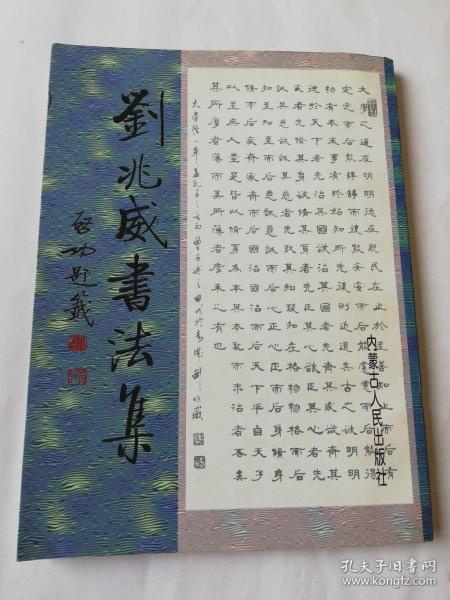 劉兆威書法集
啓功題籤
大學之道在明明德在親民在止於至善知止而后有
定定而后能靜靜而后能安安而后能慮慮而后能得
物有本末事有終始知所先後則近道矣古之欲明明
德於天下者先治其國欲治其國者先齊其家欲齊其
家者先脩其身欲脩其身者先正其心欲正其心者先
誠其意欲誠其意者先致其知致知在格物物格而后
知至知至而后意誠意誠而后心正心正而后身脩身
脩而后家齊家齊而后國治國治而后天下平自天子
以至庶人壹是皆以脩身為本其本亂而末治者否矣
其所厚者薄而其所薄者厚未之有也
大學經一章蓋孔子之言而曾子述之 劉兆威
内蒙古人民出版社
孔夫子旧书网
www.kongfz.com